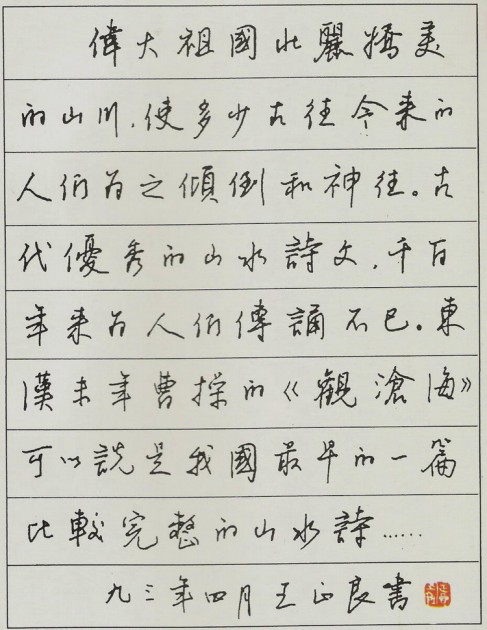 偉大祖國壮麗嬌美
的山川，使多少古往今来的
人们为之傾倒和神往。古
代優秀的山水詩文，千百
年来为人们傳誦不已。東
漢末年曹操的《觀滄海》
可以説是我國最早的一篇
比較完整的山水詩……
九三年四月王正良書